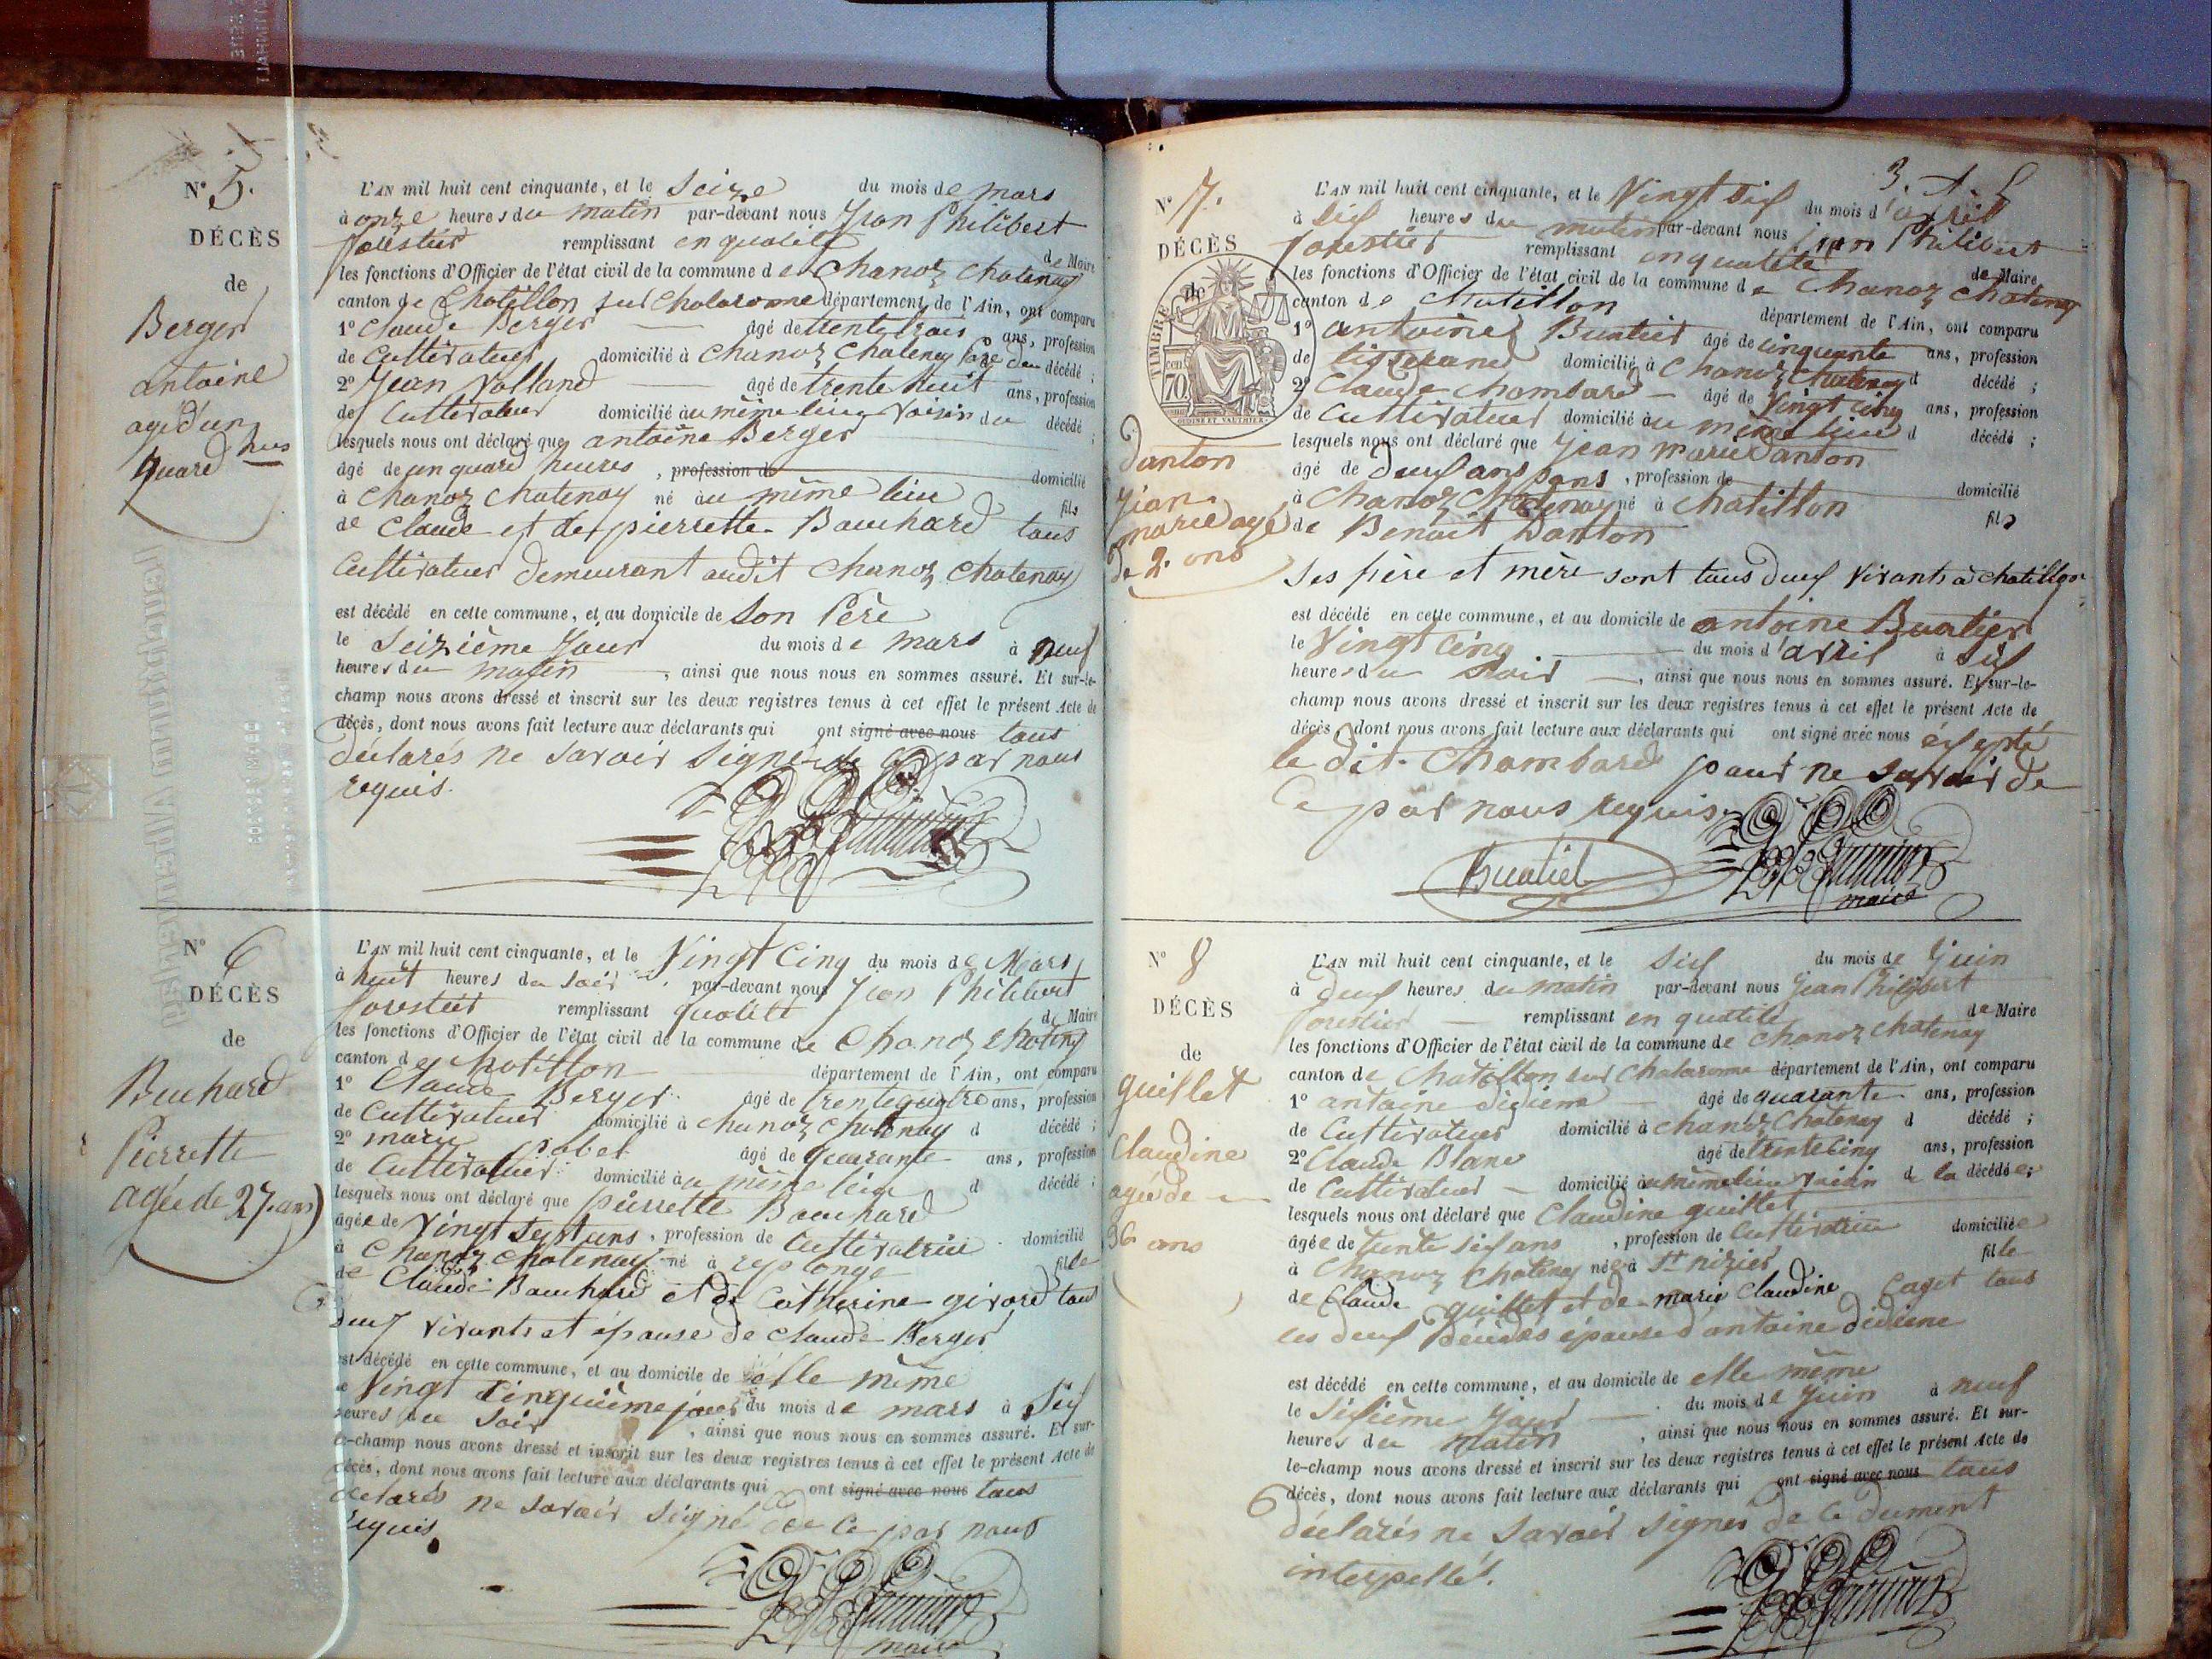 N° 5.
DÉCÈS
de
Berger
antoine
agé d'un
quard hres
L'AN mil huit cent cinquante, et le Seize du mois de mars
à onze heures du matin par-devant nous Jean Philibert
forestier remplissant en qualité de Maire
les fonctions d'Officier de l'état civil de la commune de Chanoz Chatenay
canton de Chatillon sur Chalaronne département de l'Ain, ont comparu
1° Claude Berger âgé de trente trois ans, profession
de Cultivateur domicilié à Chanoz Chatenay Père du décédé ;
2° Jean Volland âgé de trente huit ans, profession
de Cultivateur domicilié au même lieu voisin du décédé ;
lesquels nous ont déclaré que antoine Berger
âgé de un quard heures , profession de domicilié
à Chanoz Chatenay né au même lieu fils
de Claude et de pierrette Bouchard tous
Cultivateur demeurant audit Chanoz Chatenay
est décédé en cette commune, et au domicile de Son Père
le Seizième Jour du mois de mars à neuf
heures du matin , ainsi que nous nous en sommes assuré. Et sur-le-
champ nous avons dressé et inscrit sur les deux registres tenus à cet effet le présent Acte de
décès, dont nous avons fait lecture aux déclarants qui ont signé avec nous tous
déclarés ne savoir signer de ce par nous
requis.
N° 6
DÉCÈS
de
Buchard
Pierrette
agée de 27. ans
L'AN mil huit cent cinquante, et le Vingt Cinq du mois de Mars
à huit heures du soir par-devant nous Jean Philibert
forestier remplissant qualité de Maire
les fonctions d'Officier de l'état civil de la commune de Chanoz Chatenay
canton de Chatillon département de l'Ain, ont comparu
1° Claude Berger âgé de trente quatre ans, profession
de Cultivateur domicilié à Chanoz Chatenay d décédé ;
2° marie âgé de quarante ans, profession
de Cultivateur domicilié au même lieu d décédé ;
lesquels nous ont déclaré que pierrette Bouchard
âgée de Vingt Sept ans , profession de Cultivatrice domicilié
à Chanoz Chatenay né à replonge fille
de Claude Bouchard et de Catherine givord tous
deux vivants et épouse de Claude Berger
est décédé en cette commune, et au domicile de elle même
le Vingt Cinquième jour du mois de mars à Six
heures du Soir , ainsi que nous nous en sommes assuré. Et sur-
le-champ nous avons dressé et inscrit sur les deux registres tenus à cet effet le présent Acte de
décès, dont nous avons fait lecture aux déclarants qui ont signé avec nous tous
declarés ne savoir signé de ce par nous
requis
maire
N° 7.
DÉCÈS
de
TIMBRE
70
danton
Jean
marie agé
de 2. ans
L'AN mil huit cent cinquante, et le Vingt six du mois d'avril
à Six heures du matin par-devant nous Jean Philibert
forestier remplissant en qualité de Maire
les fonctions d'Officier de l'état civil de la commune de Chanoz Chatenay
canton de Chatillon département de l'Ain, ont comparu
1° antoine Buatier âgé de cinquante ans, profession
de tisserand domicilié à Chanoz Chatenay d décédé ;
2° Claude Chambard âgé de Vingt cinq ans, profession
de Cultivateur domicilié au même lieu d décédé ;
lesquels nous ont déclaré que Jean marie danton
âgé de deux ans sans , profession de domicilié
à Chanoz Chatenay né à Chatillon fils
de Benoit Danton
Ses père et mère sont tous deux vivants à chatillon
est décédé en cette commune, et au domicile de antoine Buatier
le Vingt Cinq du mois d'avril à Six
heures du soir , ainsi que nous nous en sommes assuré. Et sur-le-
champ nous avons dressé et inscrit sur les deux registres tenus à cet effet le présent Acte de
décès, dont nous avons fait lecture aux déclarants qui ont signé avec nous éxepté
le dit Chambard pour ne savoir de
Ce par nous requis.
Buatier
maire
N° 8
DÉCÈS
de
guillet
Claudine
agée de
36 ans
L'AN mil huit cent cinquante, et le Six du mois de Juin
à deux heures du matin par-devant nous Jean Philibert
forestier remplissant en qualité de Maire
les fonctions d'Officier de l'état civil de la commune de Chanoz Chatenay
canton de Chatillon sur Chalaronne département de l'Ain, ont comparu
1° antoine âgé de quarante ans, profession
de Cultivateur domicilié à Chanoz Chatenay d décédé ;
2° Claude Blanc âgé de trente cinq ans, profession
de Cultivateur domicilié au même lieu voisin d la décédée ;
lesquels nous ont déclaré que Claudine guillet
âgée de trente six ans , profession de Cultivatrice domiciliée
à Chanoz Chatenay née à St nizier fille
de Claude guillet et de marie Claudine Caget tous
les deux décédés épouse d'antoine
est décédé en cette commune, et au domicile de elle même
le Sixième Jour du mois de Juin à neuf
heures du matin , ainsi que nous nous en sommes assuré. Et sur-
le-champ nous avons dressé et inscrit sur les deux registres tenus à cet effet le présent Acte de
décès, dont nous avons fait lecture aux déclarants qui ont signé avec nous tous
déclarés ne savoir signer de ce dument
interpellé.